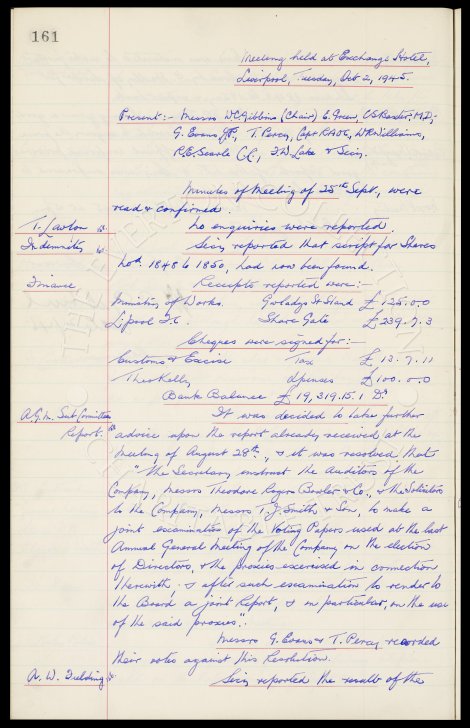 161
Meeting held at Exchange Hotel,
Liverpool, Tuesday, Oct 2, 1945.
Present:- Messrs W.C. Gibbins (Chair) E. Green, C.S. Baxter, M.D.,
G. Evans, J.P., T. Percy, Capt R.A.O.G, W.R. Williams,
R.E. Searle C.C., F.W. Lake & Secy.
Minutes of Meeting of 25th Sept, were
read & confirmed.
T. Lawton No enquiries were reported.
Indemnities Secy reported that script for Shares
Nod. 1848 to 1850, had now been found.
Finance, Receipts reported were:-
Ministry of Works. Gwladys St Stand £ 125.0.0
L'pool F.C. Share Gate £ 239.7.3
Cheques were signed for:-
Customs & Excise Tax £ 13.7.11
Theo Kelly Expenses £ 100.0.0
Bank Balance £ 19,319.15.1 Dr
A.G.M. Sub Committee It was decided to take further
Report. advice upon the report already received at the
Meeting of August 28th., & it was resolved that
"The Secretary instruct the Auditors of the
Company, Messrs Theodore Rogers Bowler & Co., & the Solicitors
to the Company, Messrs T.J. Smith & Son, to make a
joint examination of the Voting Papers used at the last
Annual General Meeting of the Company on the election
of Directors, & the proxies exercised in connection
therewith, & after such examination to render to
the Board a joint Report, & in particular, on the use
of the said proxies".
Messrs G. Evans & T. Percy recorded
their votes against this Resolution.
A. W. Fielding Secy reported the result of the